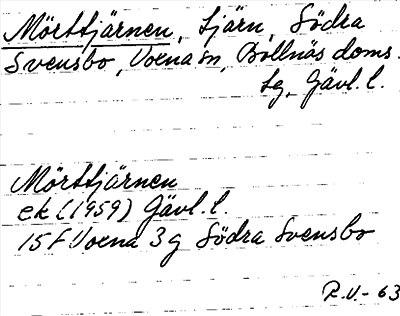 Mörttjärnen, tjärn, Södra
Svensbo, Voxna sn, Bollnäs doms.
tg, Gävl. l.
Mörttjärnen
ek (1959) Gävl. l.
15F Voxna 3g Södra Svensbo
R.V.-63